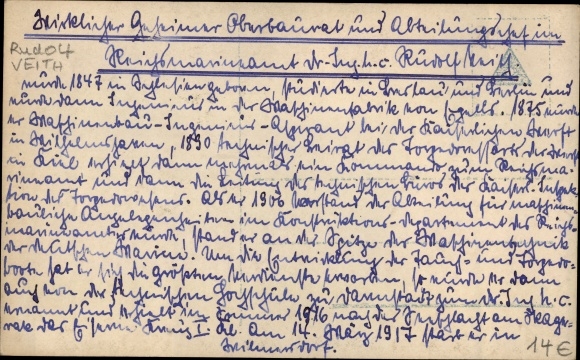 Wirklicher Geheimer Oberbaurat und Abteilungschef im
Rudolf
VEITH
Reichsmarineamt Dr-Ing. h. c. Rudolf Veith
wurde 1847 in Schlesien geboren, studierte in Breslau und Berlin und
wurde dann Ingenieur in der Maschinenfabrik von Egells. 1875 wurde
er Maschinenbau-Ingenieur-Aspirant bei der Kaiserlichen Werft
in Wilhelmshaven, 1890 technischer Beirat des Torpedoressorts der Werft
in Kiel erhielt dann mehrmals ein Kommando zum Reichsma-
rineamt und dann die Leitung des technischen Büros der Kaiserl. Inspek-
tion des Torpedowesens. Als er 1906 Vorstand der Abteilung für maschinen-
bauliche Angelegenheiten im Konstruktions-Departement des Reichs-
marineamtes wurde, stand er an der Spitze der Maschinentechnik
der deutschen Marine! Um die Entwicklung der Tauch- und Torpedo-
boote hat er sich die größten Verdienste erworben, so wurde er dann
auch von der Technischen Hochschule zu Darmstadt zum Dr. Ing. h. c.
ernannt und erhielt im Sommer 1916 nach der Seeschlacht am Skager-
rak das Eiserne Kreuz I. Kl. Am 14. März 1917 starb er in
Wilmersdorf.
14 €